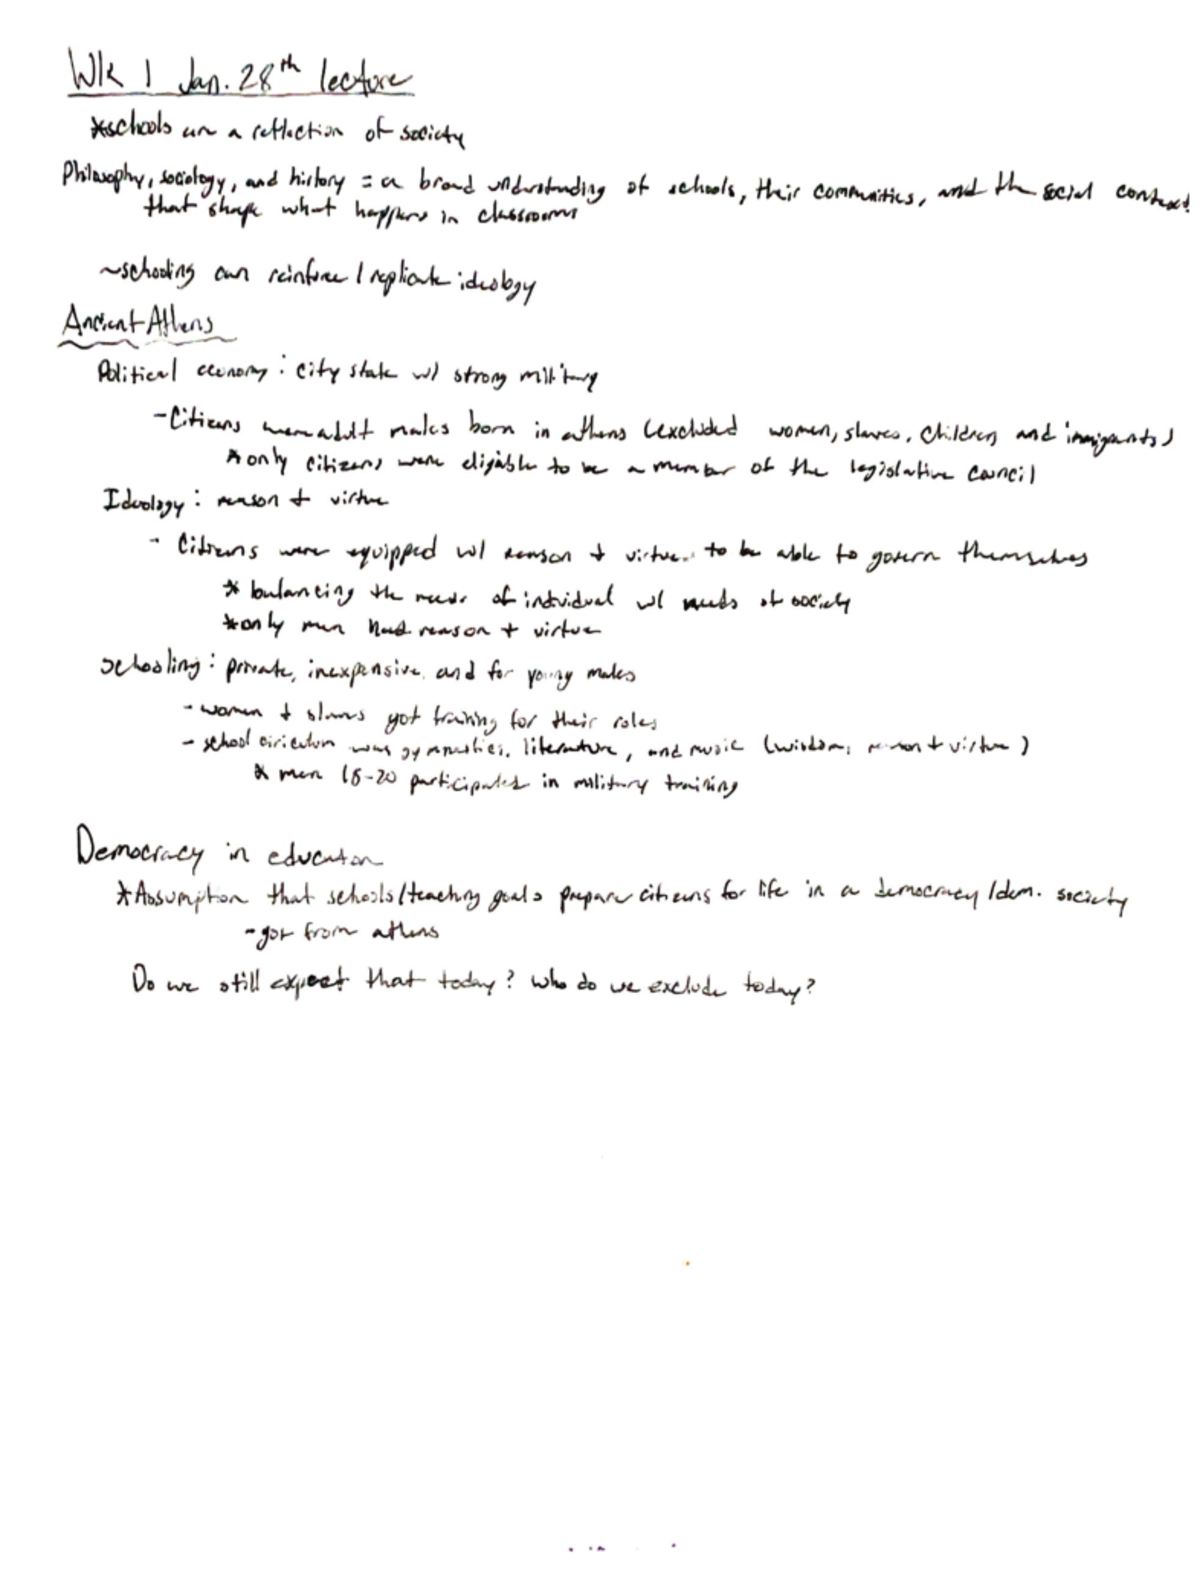 Wk 1 Jan. 28th lecture
*schools are a reflection of society
Philosophy, sociology, and history = a broad understanding of schools, their communities, and the social context
that shape what happens in classrooms
~schooling can reinforce / replicate ideology
Ancient Athens
Political economy: city state w/ strong military
- Citizens were adult males born in athens (excluded women, slaves, children, and inmigrants)
* only citizens were eligable to be a member of the legislative council
Ideology: reason + virtue
- Citizens were equipped w/ reason + virtue to be able to govern themselves
* balancing the needs of individual w/ needs of society
*only men had reason + virtue
Schooling: private, inexpensive, and for young males
- women + slaves got training for their roles
- school ciriculum was gymnastics, literature, and music (wisdom, reason + virtue)
* men 18-20 participated in military training
Democracy in education
*Assumption that schools/teaching goals prepare citizens for life in a democracy/dem. society
- got from athens
Do we still expect that today? Who do we exclude today?